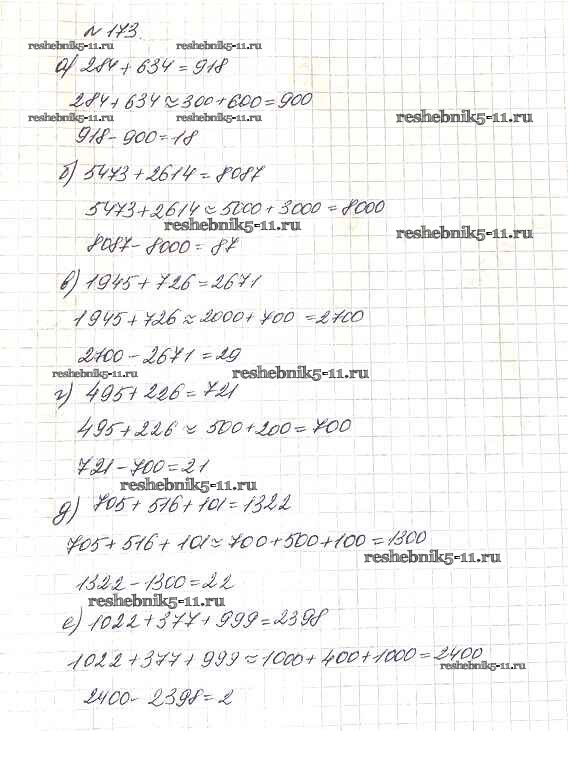 № 173
reshebnik5-11.ru reshebnik5-11.ru
а) 284 + 634 = 918
284 + 634 ≈ 300 + 600 = 900
reshebnik5-11.ru reshebnik5-11.ru reshebnik5-11.ru
918 - 900 = 18
б) 5473 + 2614 = 8087
5473 + 2614 ≈ 5000 + 3000 = 8000
reshebnik5-11.ru reshebnik5-11.ru
8087 - 8000 = 87
в) 1945 + 726 = 2671
1945 + 726 ≈ 2000 + 700 = 2700
2700 - 2671 = 29
reshebnik5-11.ru reshebnik5-11.ru
г) 495 + 226 = 721
495 + 226 ≈ 500 + 200 = 700
721 - 700 = 21
reshebnik5-11.ru
д) 705 + 516 + 101 = 1322
705 + 516 + 101 ≈ 700 + 500 + 100 = 1300
reshebnik5-11.ru
1322 - 1300 = 22
reshebnik5-11.ru
е) 1022 + 377 + 999 = 2398
1022 + 377 + 999 ≈ 1000 + 400 + 1000 = 2400
reshebnik5-11.ru
2400 - 2398 = 2